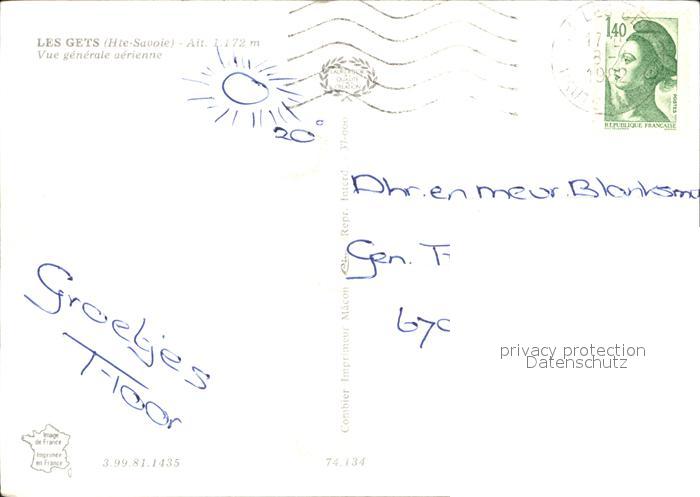 LES GETS (Hte-Savoie) - Alt. 1 172 m
Vue générale aérienne
20°
1,40
REPUBLIQUE FRANÇAISE
POSTES
Dhr. en meur. Blanksma
Gen. T
670
Groetjes
Combier Imprimeur Mâcon
Repr. Interd.
privacy protection
Datenschutz
Image
de France
Imprimée
en France
3.99.81.1435
74.134